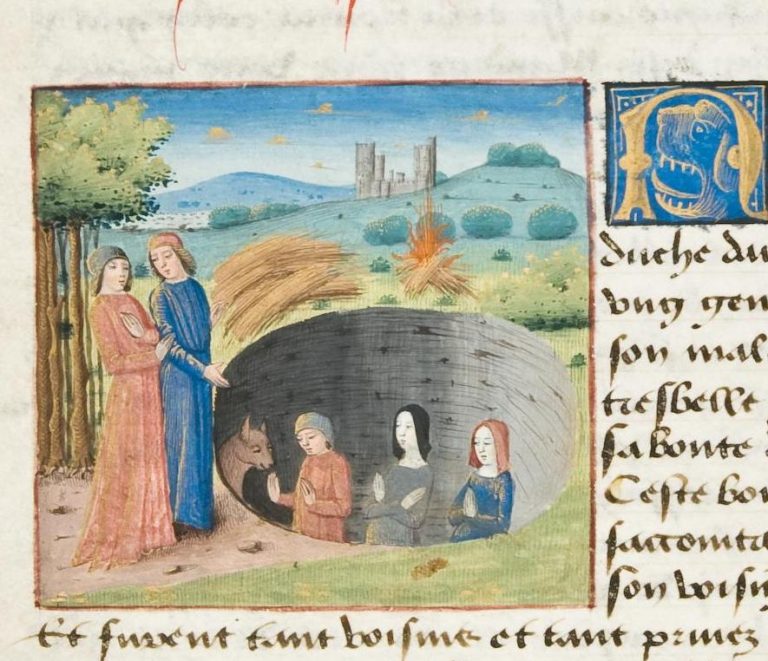 N
duche dau
vng gen
son mal
tresbelle
sa bonte d
Ceste bon
saccointa
son voisin
Et furent tant voisins et tant priuez